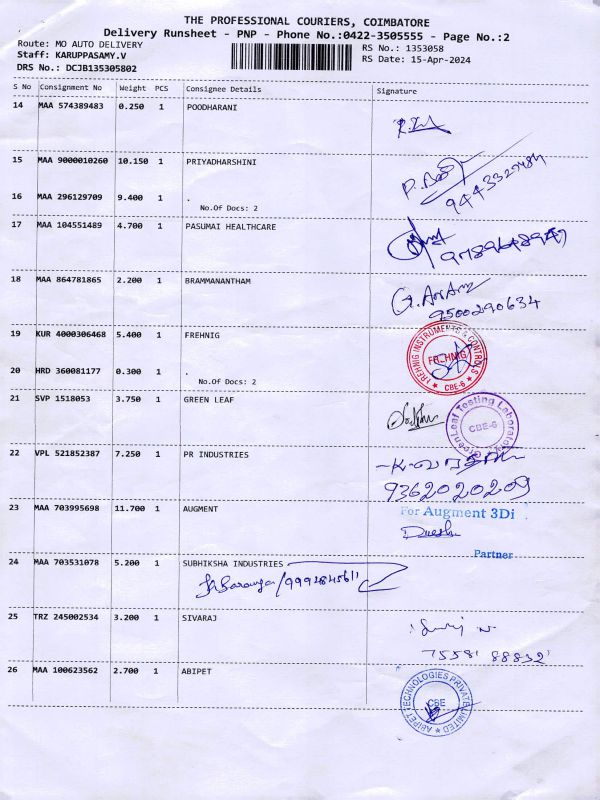 THE PROFESSIONAL COURIERS, COIMBATORE
Delivery Runsheet - PNP - Phone No.:0422-3505555 - Page No.:2
Route: MO AUTO DELIVERY RS No.: 1353058
Staff: KARUPPASAMY.V RS Date: 15-Apr-2024
DRS No.: DCJB135305802
S No Consignment No Weight PCS Consignee Details Signature
14 MAA 574389483 0.250 1 POODHARANI
15 MAA 9000010260 10.150 1 PRIYADHARSHINI
16 MAA 296129709 9.400 1 .
No.Of Docs: 2
17 MAA 104551489 4.700 1 PASUMAI HEALTHCARE
18 MAA 864781865 2.200 1 BRAMMANANTHAM
9500290634
19 KUR 4000306468 5.400 1 FREHNIG
FREHNIG INSTRUMENTS & CONTROLS
FREHNIG
CBE-6
20 HRD 360081177 0.300 1 .
No.Of Docs: 2
21 SVP 1518053 3.750 1 GREEN LEAF
GreenLeaf Testing Laboratory
CBE-6
22 VPL 521852387 7.250 1 PR INDUSTRIES
9362020209
23 MAA 703995698 11.700 1 AUGMENT
For Augment 3Di
Partner
24 MAA 703531078 5.200 1 SUBHIKSHA INDUSTRIES
25 TRZ 245002534 3.200 1 SIVARAJ
75581 88832
26 MAA 100623562 2.700 1 ABIPET
ABIPET TECHNOLOGIES PRIVATE LIMITED
CBE